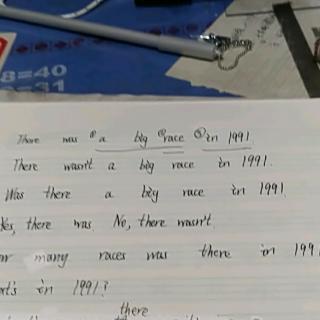 8=40
=31
There was ①a big ②race ③in 1991.
There wasn't a big race in 1991.
Was there a big race in 1991
Yes, there was. No, there wasn't.
many races was there in 199
in 1991?
there